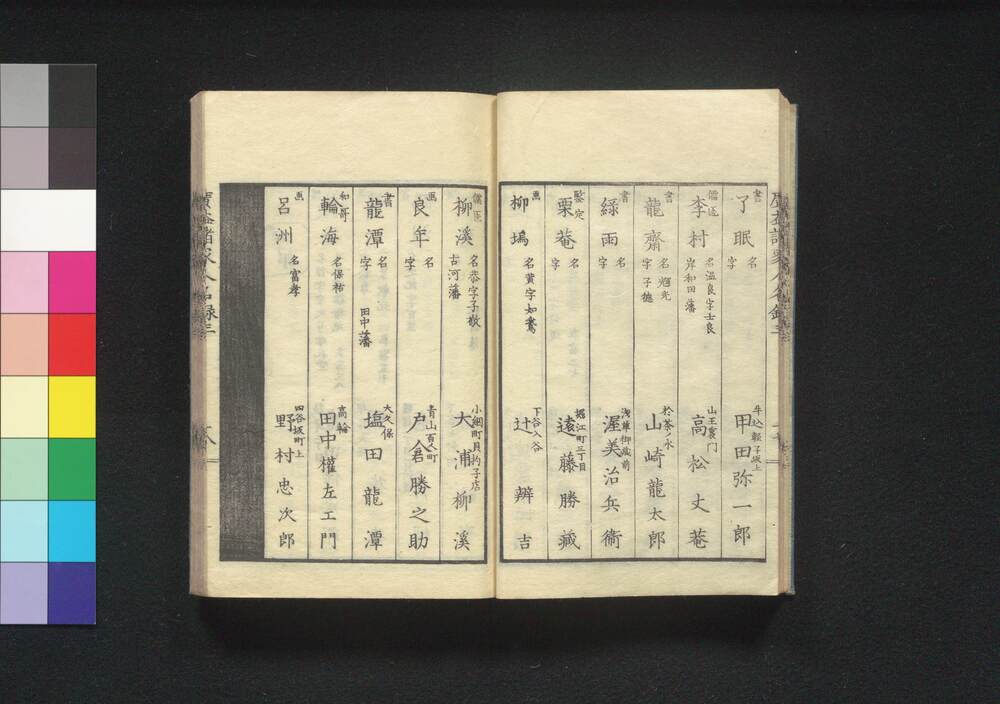 書 了眠 名 字 牛込軽子坂上 甲田弥一郎
儒医 李村 名温良字士良 岸和田藩 山王裏門 高松丈菴
書 龍齋 名 字子 於茶ノ水 山崎龍太郎
書 緑雨 名 字 浅草御蔵前 渥美治兵衛
鑒定 栗菴 名 字 堀江町三丁目 遠藤勝藏
画 柳塢 名黄字如鶯 下谷入谷 辻辨吉
儒医 柳溪 名恭字子敬 古河藩 小網町貝杓子店 大浦柳溪
画 良年 名 字 青山百人町 戸倉勝之助
書 龍潭 名 字 田中藩 大久保 塩田龍潭
和哥 輪海 名保祐 高輪 田中權左エ門
画 呂洲 名富孝 四谷坂町上 野村忠次郎